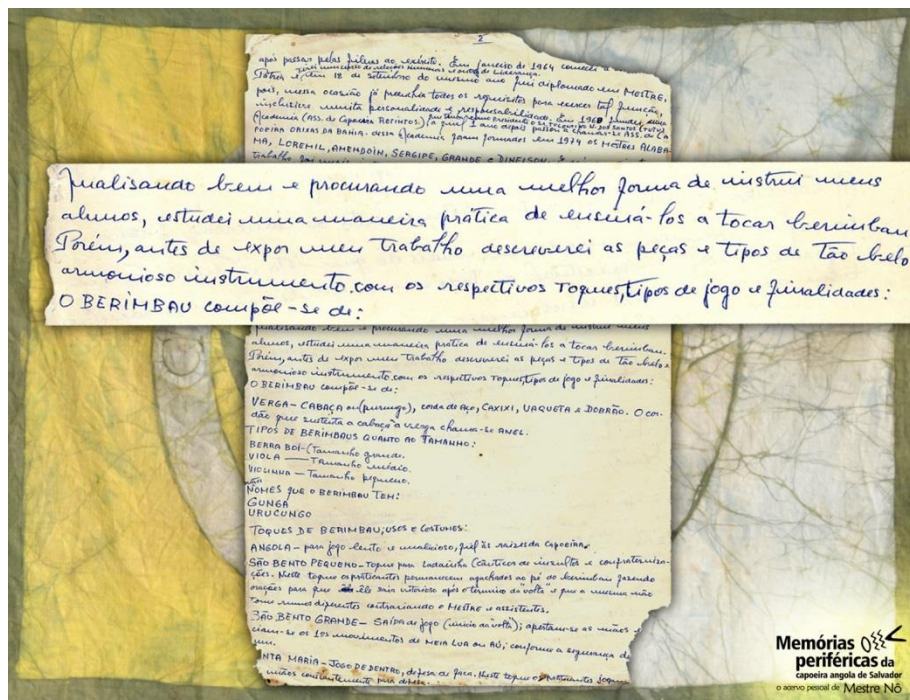 2
após passar pelas filas do exército. Em janeiro de 1964 comecei a
Pátria e, em 18 de setembro do mesmo ano fui diplomado em MESTRE,
pois, nessa ocasião já preenchia todos os requisitos para exercer tal função,
inclusive muita personalidade e responsabilidade. Em 1968 fundei
Academia (Ass. de Capoeira RETINTOS)
1 ano depois passou a chamar-se ASS. DE CA
POEIRA ORIXÁS DA BAHIA. dessa Academia foram formados em 1974 os MESTRES ALABA-
MA, LOREMIL, AMENDOIN, SERGIPE, GRANDE e DINELSON.
trabalho
Analisando bem e procurando uma melhor forma de instrui meus
alunos, estudei uma maneira prática de ensiná-los a tocar berimbau
Porém, antes de expor meu trabalho descreverei as peças e tipos de tão belo
armonioso instrumento, com os respectivos Toques, tipos de jogo e finalidades:
O BERIMBAU compõe-se de:
analisando bem e procurando uma melhor forma de instrui meus
alunos, estudei uma maneira prática de ensiná-los a tocar berimbau.
Porém, antes de expor meu trabalho descreverei as peças e tipos de tão belo e
armonioso instrumento, com os respectivos Toques, tipos de jogo e finalidades:
O BERIMBAU compõe-se de:
VERGA - CABAÇA ou (purungo), corda de Aço, CAXIXI, VAQUETA e DOBRÃO. O cor-
dão que sustenta a cabaça à verga chama-se ANEL.
TIPOS DE BERIMBAUS QUANTO AO TAMANHO:
BERRA BOI - (Tamanho grande.
VIOLA — Tamanho médio.
VIOLINHA — Tamanho pequeno.
NOMES QUE O BERIMBAU TEM:
GUNGA
URUCUNGO
TOQUES DE BERIMBAU; USOS E COSTUMES:
ANGOLA - para jogo lento e malicioso, fiel às raízes da capoeira.
SÃO BENTO PEQUENO - Toque para ladainha (cânticos de insultos e confraterniza-
ções. Neste toque os praticantes permanecem agachados ao pé do berimbau fazendo
orações para que ele saia vitorioso após o término da "volta" e que a mesma não
tome rumos diferentes contrariando o MESTRE e assistentes.
SÃO BENTO GRANDE - SAÍDA de jogo (início da "volta"); apertam-se as mãos e
ciam-se os 1os movimentos de MEIA LUA OU AÚ; conforme a segurança de
um.
NTA MARIA - JOGO DE DENTRO, defesa de faca. Neste toque os praticantes jogam
mãos constantemente para defesa.
Memórias
periféricas da
capoeira angola de Salvador
o acervo pessoal de Mestre Nô